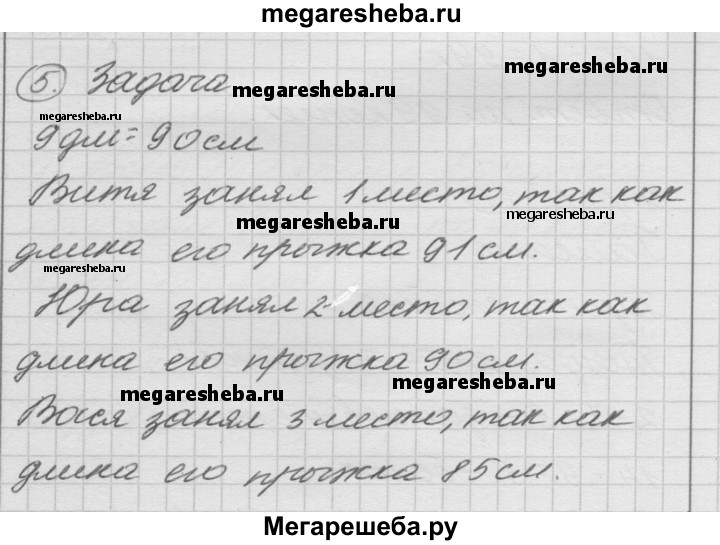 megaresheba.ru
5. Задача
megaresheba.ru
megaresheba.ru
megaresheba.ru
9дм=90см
Витя занял 1 место, так как
megaresheba.ru
megaresheba.ru
длина его прыжка 91см.
megaresheba.ru
Юра занял 2 место, так как
длина его прыжка 90см.
megaresheba.ru
megaresheba.ru
Вася занял 3 место, так как
длина его прыжка 85см.
Мегарешеба.ру